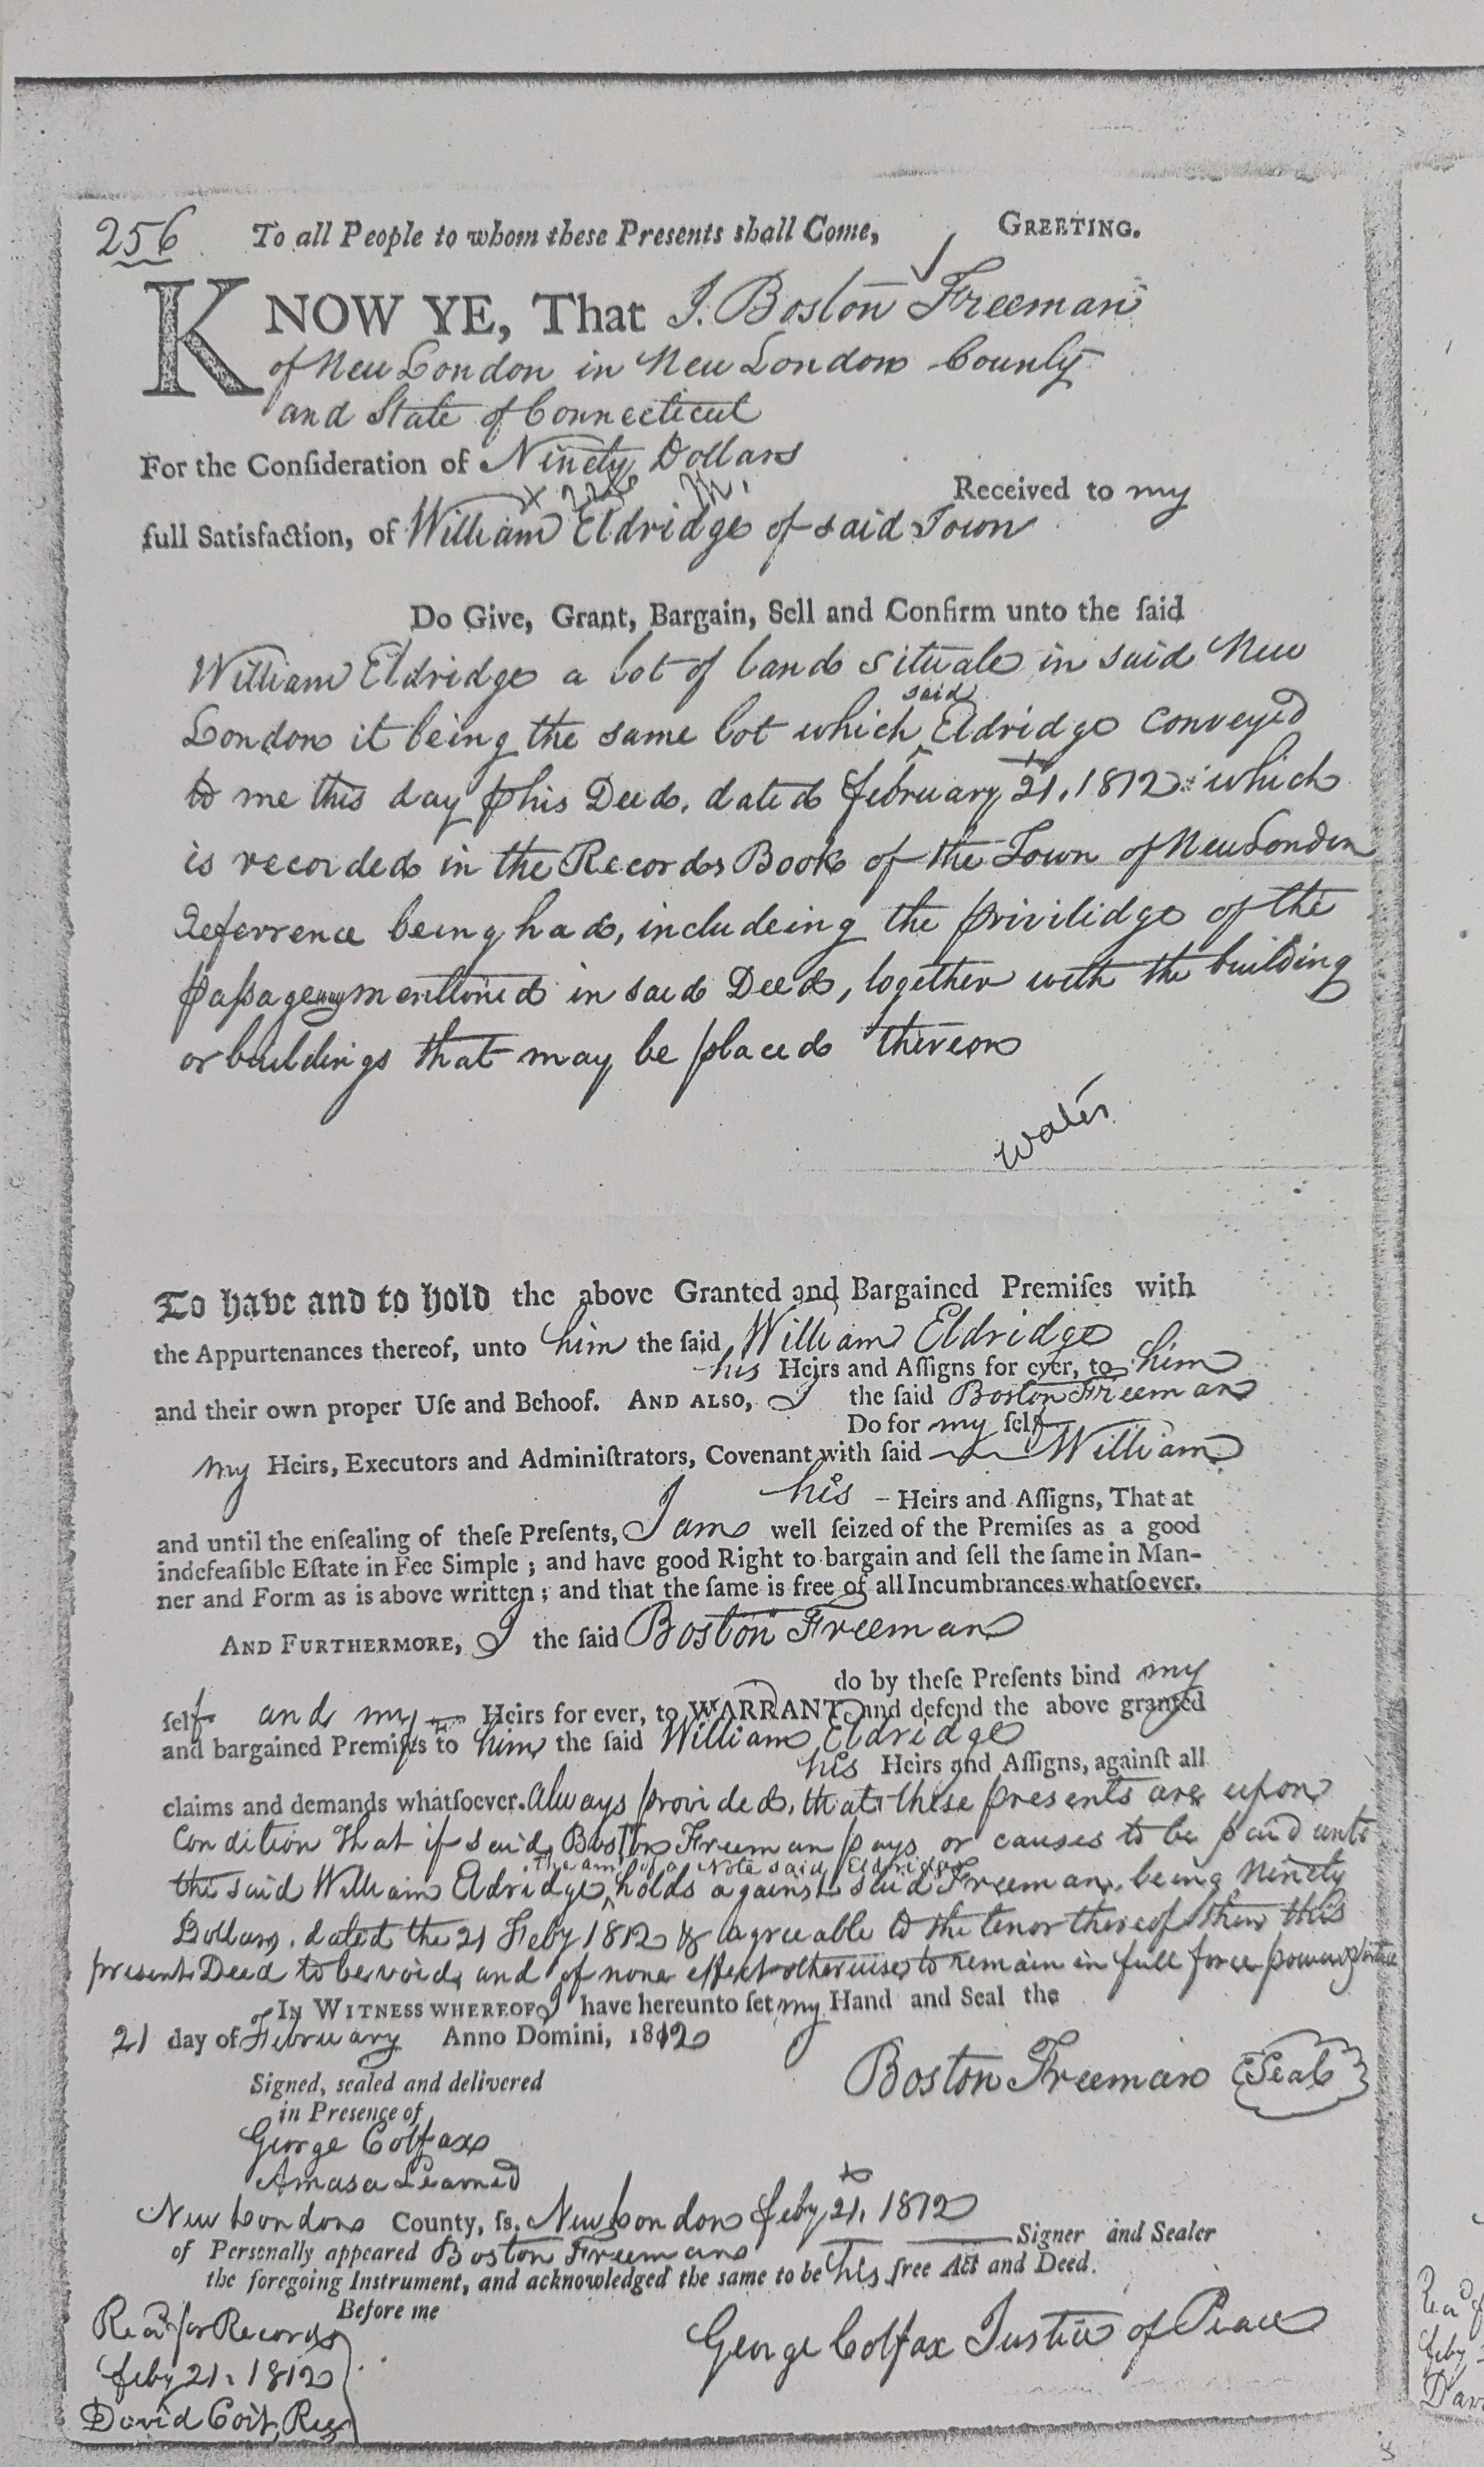 256 To all People to whom these Presents shall Come, GREETING.
KNOW YE, That I. Boston Freeman
of New London in New London County
and State of Connecticut
For the Conſideration of Ninety Dollars
Received to my
full Satisfaction, of William Eldridge of said Town
Do Give, Grant, Bargain, Sell and Confirm unto the ſaid
William Eldridge a lot of land situate in said New
said
London it being the same lot which ^ Eldridge conveyed
to me this day ꝑ his Deed, dated february 21, 1812 : which
is recorded in the Records Book of the Town of New London
Referrence being had, includeing the privilidge of the
paſsageway mentioned in said Deed, together with the building
or buildings that may be placed thereon
water
To have and to hold the above Granted and Bargained Premiſes with
the Appurtenances thereof, unto him the ſaid William Eldridge
his Heirs and Aſſigns for ever, to him
and their own proper Uſe and Behoof. AND ALSO, I the ſaid Boston Freeman
Do for my ſelf
my Heirs, Executors and Adminiſtrators, Covenant with ſaid William
his - Heirs and Aſſigns, That at
and until the enſealing of theſe Preſents, I am well ſeized of the Premiſes as a good
indefeaſible Eſtate in Fee Simple ; and have good Right to bargain and ſell the ſame in Man-
ner and Form as is above written ; and that the ſame is free of all Incumbrances whatſoever.
AND FURTHERMORE, I the ſaid Boston Freeman
do by theſe Preſents bind my
ſelf and my Heirs for ever, to WARRANT and defend the above granted
and bargained Premiſes to him the ſaid William Eldridge
his Heirs and Aſſigns, againſt all
claims and demands whatſoever. Always provided, that these presents are upon
Condition that if said Boston Freeman pays or causes to be paid unto
the amt of a Note said Eldridge
the said William Eldridge ^ holds against said Freeman, being Ninety
Dollars, dated the 21 Feby 1812 & agreeable to the tenor thereof then this
present Deed to be void, and of none effect otherwise to remain in full force power & virtue
IN WITNESS WHEREOF I have hereunto ſet my Hand and Seal the
21 day of February Anno Domini, 1812
Signed, sealed and delivered
in Presence of
Boston Freeman Seal
George Colfax
Amasa Learned
New London County, ſs. New London feby 21, 1812
Signer and Sealer
of Personally appeared Boston Freeman
the foregoing Instrument, and acknowledged the same to be his free Act and Deed.
Before me
George Colfax Justice of Peace
Recd for Record
feby 21. 1812
David Coit, Regr